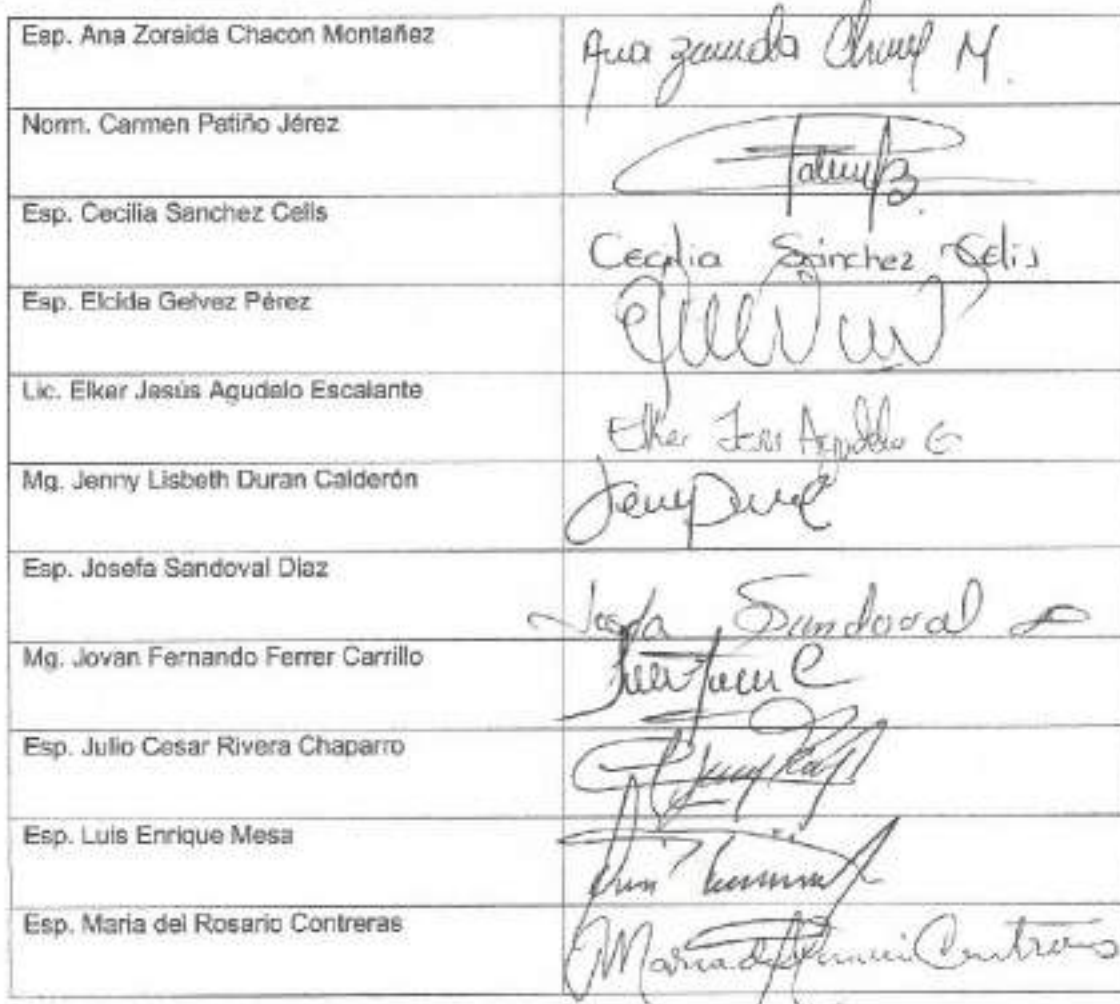 Esp. Ana Zoraida Chacon Montañez
Ana M.
Norm. Carmen Patiño Jérez
Esp. Cecilia Sanchez Celis
Cecilia Sánchez Selis
Esp. Elcida Gelvez Pérez
Lic. Elker Jesús Agudelo Escalante
Elker Jesus Agudelo E
Mg. Jenny Lisbeth Duran Calderón
Esp. Josefa Sandoval Diaz
Josefa Sandoval D
Mg. Jovan Fernando Ferrer Carrillo
Esp. Julio Cesar Rivera Chaparro
Esp. Luis Enrique Mesa
Esp. Maria del Rosario Contreras
Maria del Contreras